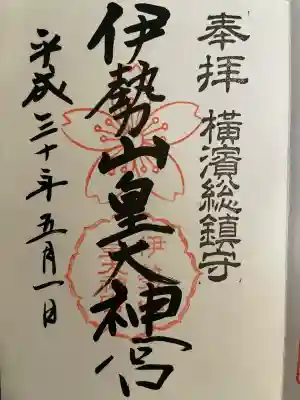 奉拝 横濱総鎮守
伊勢山皇大神宮
平成三十年五月一日